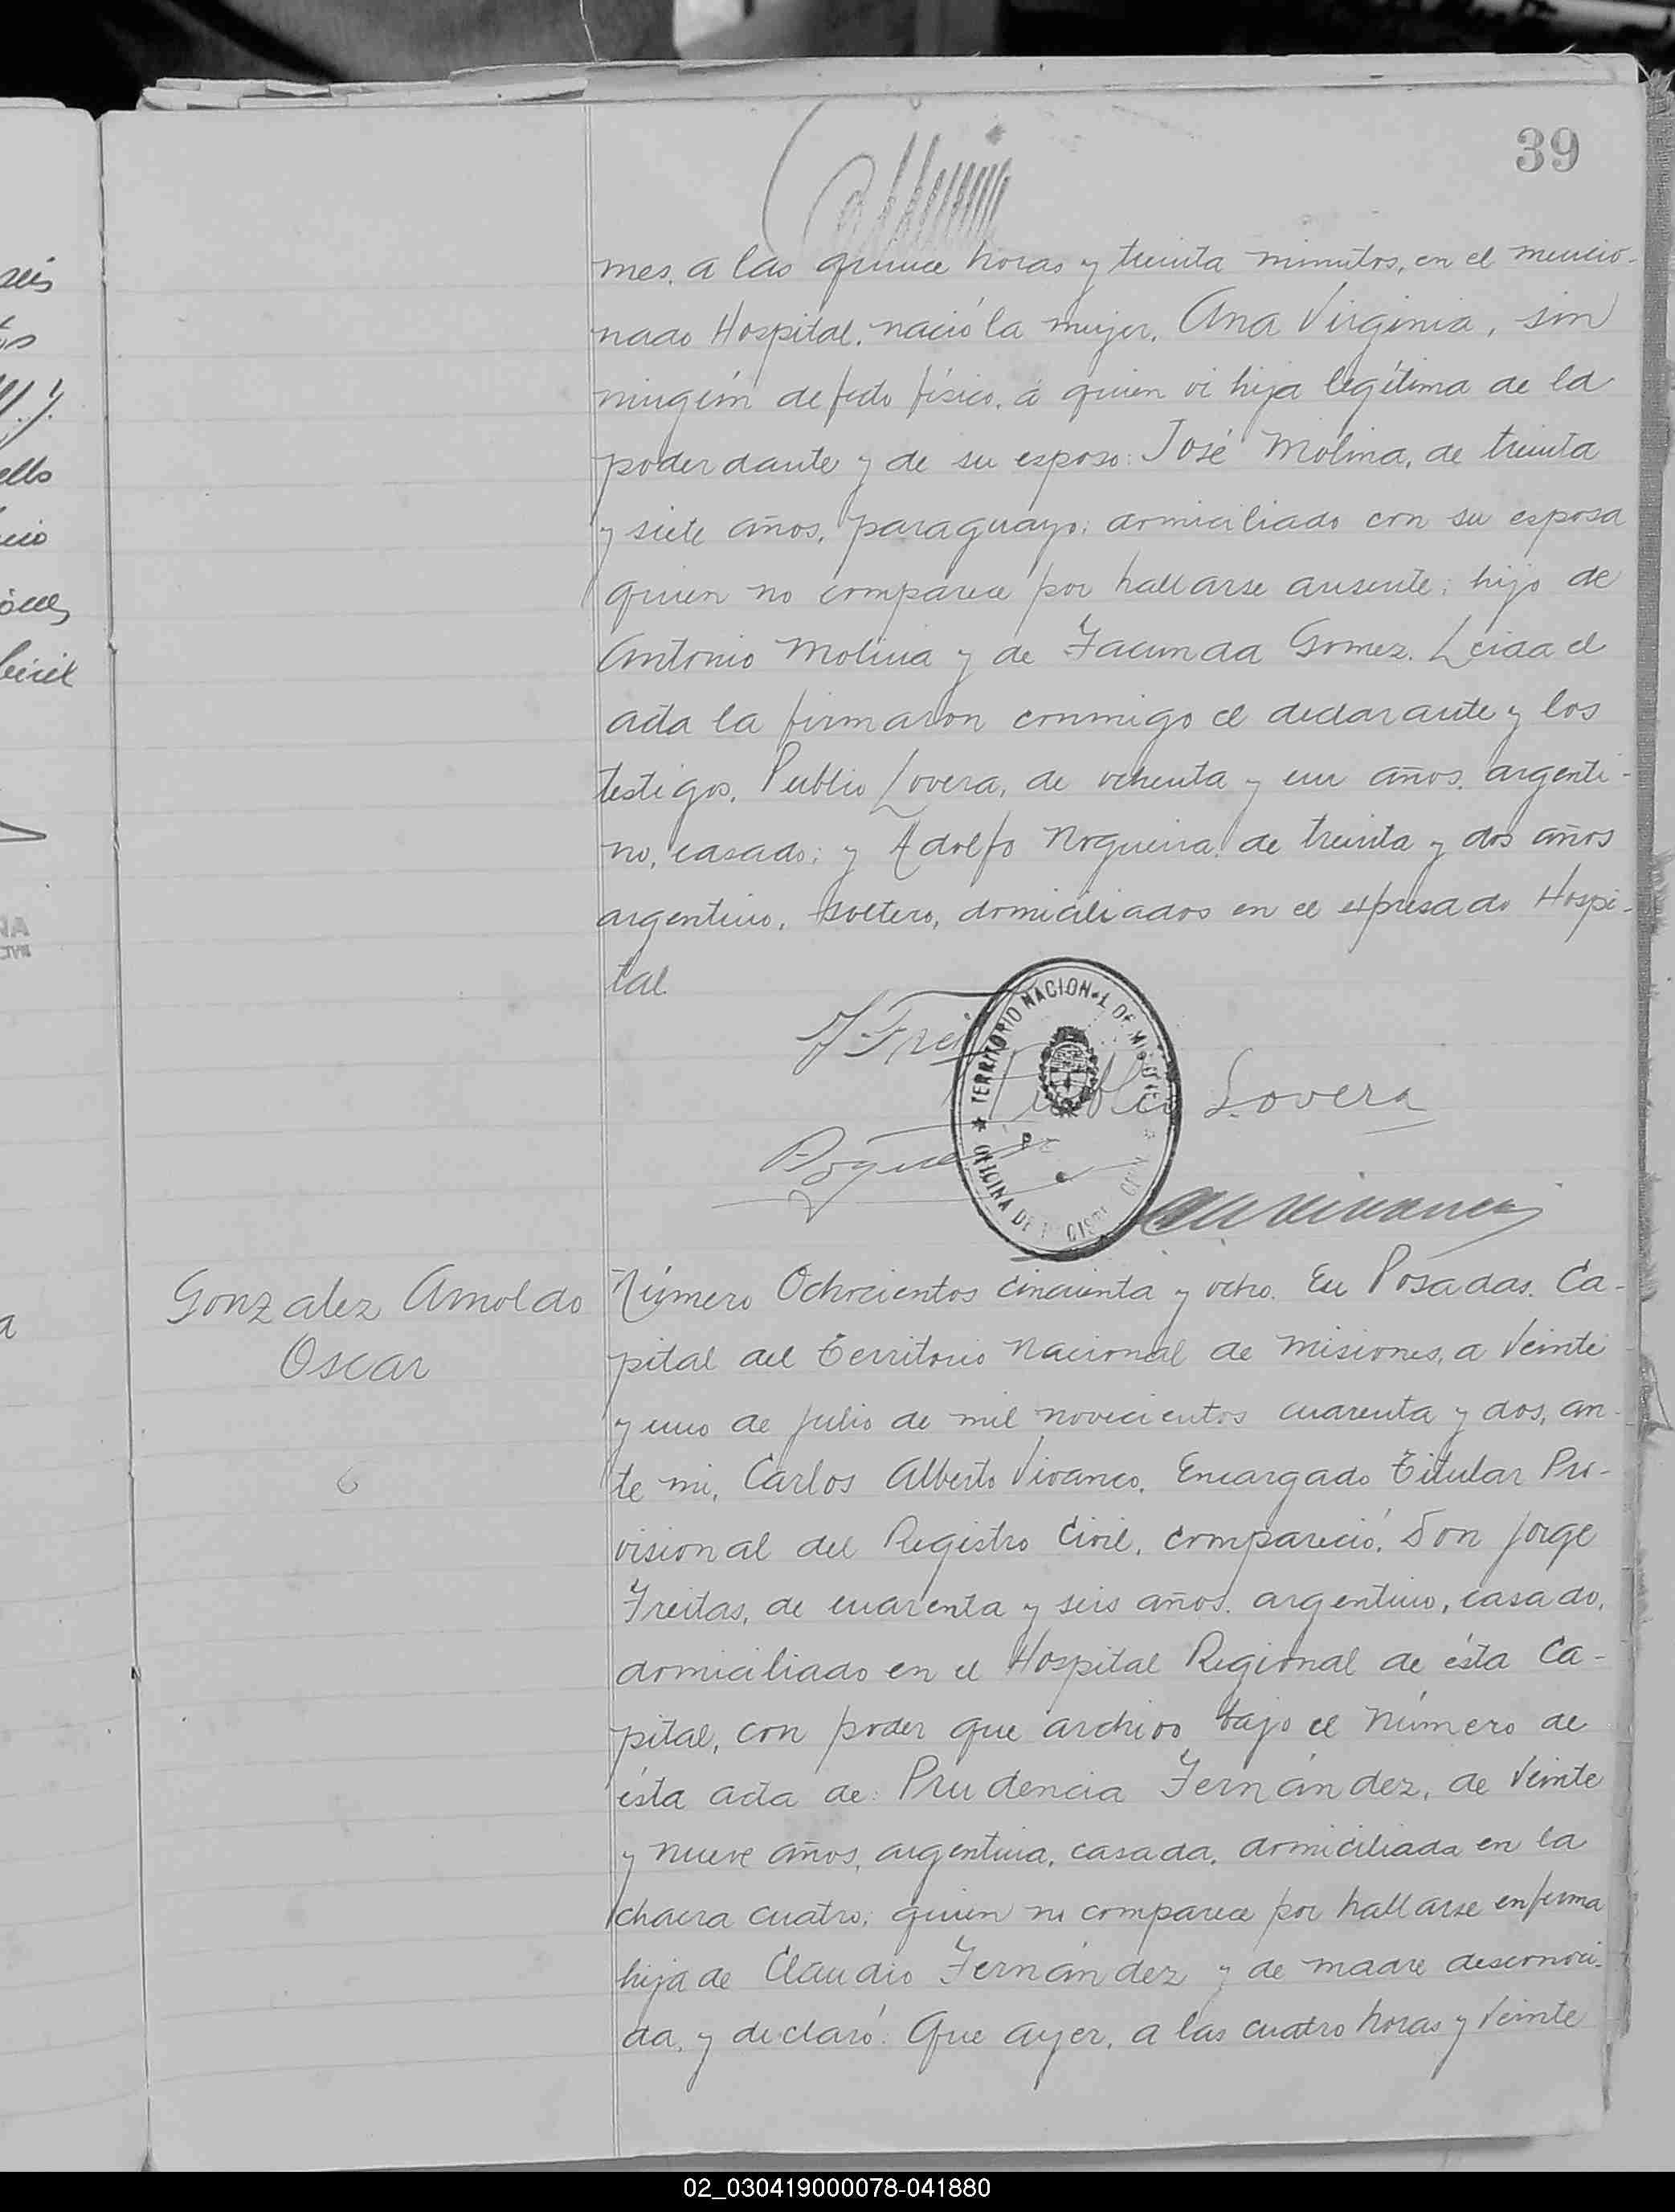 39
mes, a las quince horas y treinta minutos, en el mencio-
nado Hospital, nació la mujer, Ana Virginia, sin
ningún defecto físico, a quien vi hija legítima de la
poderdante y de su esposo: José Molina, de treinta
y siete años, paraguayo, domiciliado con su esposa
quien no comparece por hallarse ausente; hijo de
Antonio Molina y de Facunda Gomez. Leida el
acta la firmaron conmigo el declarante y los
testigos, Publio Lovera, de ochenta y un años, argenti-
no, casado; y Adolfo Nogueira, de treinta y dos años
argentino, soltero, domiciliados en el expresado Hospi-
tal.
TERRITORIO NACIONAL DE MISIONES
OFICINA DE REGISTRO CIVIL
Publio Lovera
Gonzalez Arnoldo
Oscar
6
Número Ochocientos cincuenta y ocho. En Posadas, Ca-
pital del Territorio Nacional de Misiones, a veinte
y uno de Julio de mil novecientos cuarenta y dos, an-
te mi, Carlos Alberto Vivanco, Encargado Titular Pro-
visional del Registro Civil, compareció, Don Jorge
Freitas, de cuarenta y seis años, argentino, casado,
domiciliado en el Hospital Regional de ésta Ca-
pital, con poder que archivo bajo el número de
ésta acta de: Prudencia Fernández, de veinte
y nueve años, argentina, casada, domiciliada en la
chacra cuatro; quien no comparece por hallarse enferma
hija de Claudio Fernández y de madre desconoci-
da, y declaró: Que ayer, a las cuatro horas y veinte
02_030419000078-041880